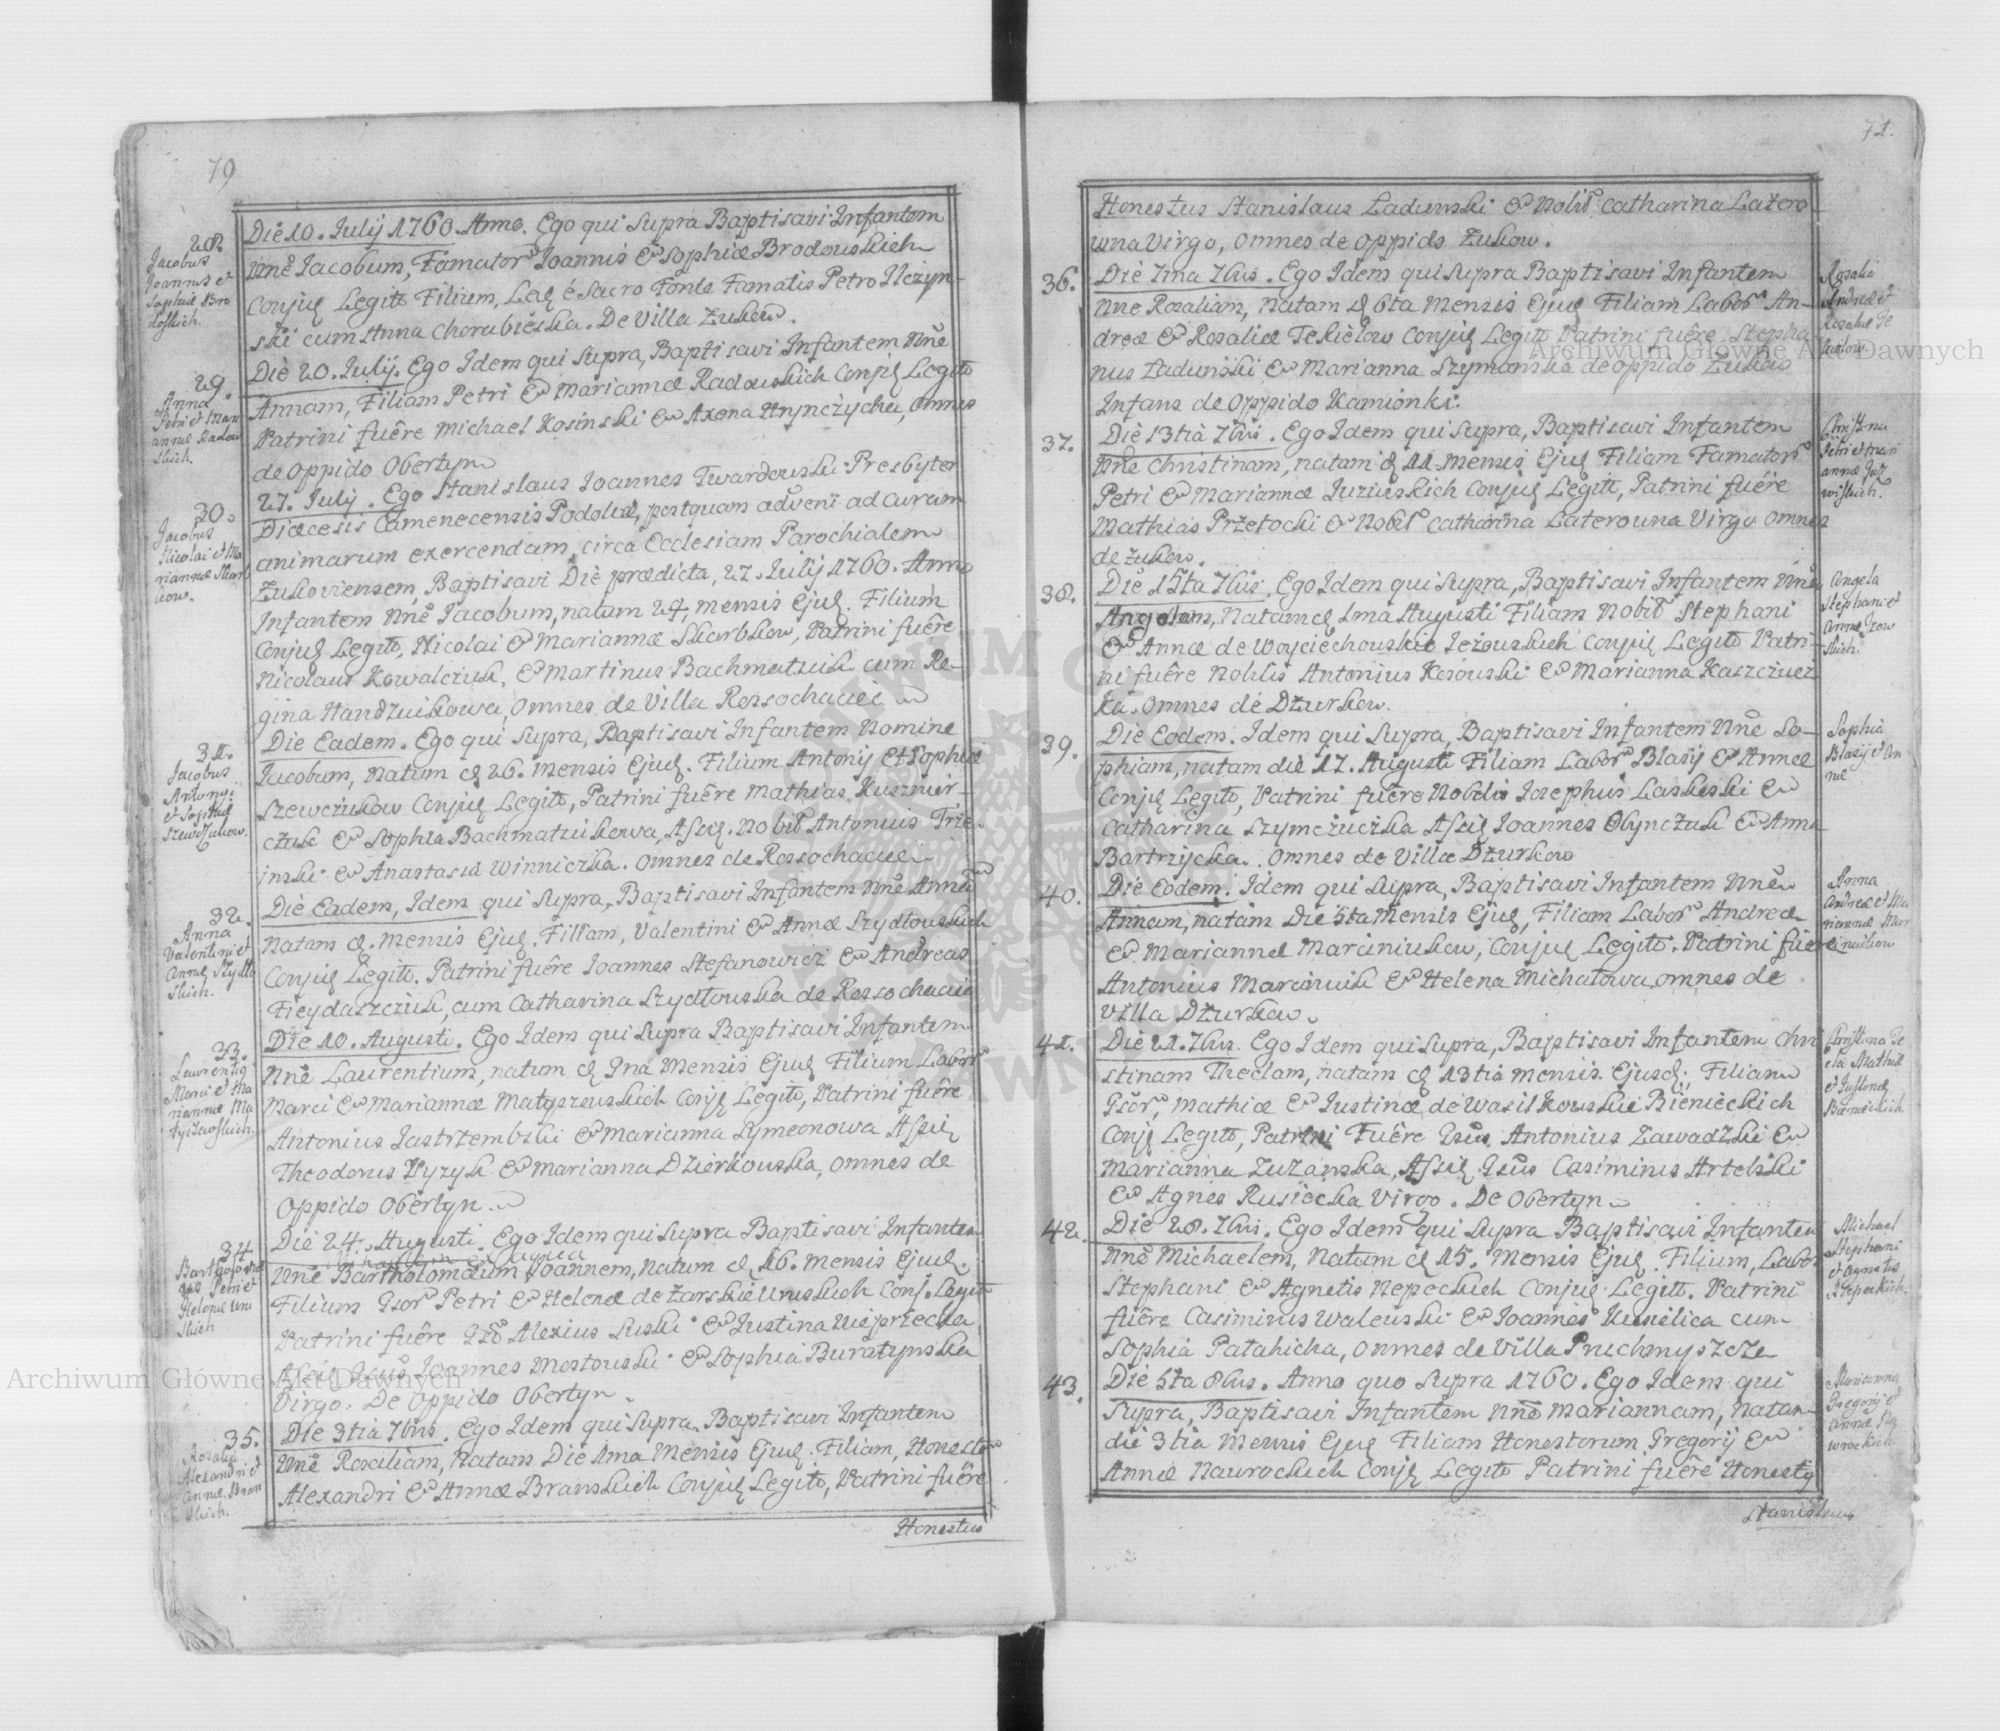 79
28.
Jacobus
Joannis et
Sophiæ Bro
doskich.
Die 10. Julij 1760. Anno. Ego qui Supra Baptisavi Infantem
Nne Jacobum, Famator Joannis & Sophiæ Brodouskich
Conjug Legito Filium, Leq é Sacro Fonte Famatis Petro
ski cum Anna Chorabieska. De Villa Zukow.
29.
Anna
Petri et Mari
annæ Radow
skich.
Die 20. Julij. Ego Idem qui Supra, Baptisavi Infantem Nne
Annam, Filiam Petri & Mariannæ Radouskich Conjug Legito
Patrini fuêre Michael Kosinski & Axena Hrynczycha, omnes
de Oppido Obertyn
30.
Jacobus
Nicolai et Ma
riannæ Skarb
kow.
27. July. Ego Stanislaus Joannes Twardouski Presbyter
Diæcesis Camenecensis Podoliæ, postquam adveni ad curam
animarum exercendam, circa Ecclesiam Parochialem
Zukoviensem, Baptisavi Die prædicta, 27. Julij 1760. Anno
Infantem Nne Jacobum, natum 24, mensis Ejuq. Filium
Conjug Legito, Nicolai & Mariannæ Skarbkow, Patrini fuêre
Nicolaus Kowalczuk, & Martinus Bachmatiuk cum Re-
gina Handzuikowa, omnes de Villa Rossochaciec
31.
Jacobus
Antony
et Sophiæ
Szewczukow.
Die Eadem. Ego qui Supra, Baptisavi Infantem Nomine
Jacobum, Natum q 26. Mensis Ejuq. Filium Antonij Et Sophiæ
Szewczukow Conjug Legito, Patrini fuêre Mathias Kusznir-
czuk & Sophia Bachmatiukowa, Assiq. Nobil Antonius Trie-
inski & Anastasia Winniczka. Omnes de Rossochaciec
32.
Anna
Valentini et
Annæ Szydło
skich.
Die Eadem, Idem qui Supra, Baptisavi Infantem Nne Annam
Natam q. Mensis Ejuq. Filiam, Valentini & Annæ Szydłouskich
Conjug Legito. Patrini fuêre Joannes Stefanowicz & Andreas
Fieydaszczuk, cum Catharina Szydłouska de Rossochaciec
33.
Laurentiq
Marci et Ma
riannæ Ma
tyszewskich.
Die 10. Augusti. Ego Idem qui Supra Baptisavi Infantem
Nne Laurentium, natum q 2na Mensis Ejuq Filium Labor
Marci & Mariannæ Matyszeuskich Conjq Legito, Patrini fuêre
Antonius Jastrzembski & Marianna Symeonowa Assiq
Theodorus Pyzyk & Marianna Dzierkouska, omnes de
Oppido Obertyn
34.
Bartholomæ
us Petri et
Helenæ Urus
skich
Die 24. Augusti. Ego Idem qui Supra Baptisavi Infantem
Nne Bartholomæum Joannem, natum q 16. mensis Ejuq.
Filium Gsor Petri & Helenæ de Zarskie Uruskich Conj. Legit
Patrini fuêre Alexius Suski & Justina Wieprzecka
Joannes Mostouski & Sophia Buratynska
Virgo. De Oppido Obertyn.
35.
Rosalia
Alexandri et
Annæ Bran
skich.
Die 3tia 7bris. Ego Idem qui Supra Baptisavi Infantem
Nne Rosaliam, Natam Die 1ma Mensis Ejuq. Filiam, Honestor
Alexandri & Annæ Branskich Conjug Legito, Patrini fuêre
Honestus
71.
Honestus Stanislaus Ladunski & Nobil Catharina Latero
wna Virgo, omnes de Oppido Zukow.
36.
Die 7ma 7bris. Ego Idem qui Supra Baptisavi Infantem
Nne Rosaliam, natam q 6ta Mensis Ejuq Filiam Labor An-
dreæ & Rosaliæ Tekielow Conjug Legito Patrini fuêre Stepha-
nus Ladunski & Marianna Szymanska de oppido Zukow
Infans de Oppido Kamionki.
Rosalia
Andreæ et
Rosaliæ Te
kielow.
37.
Die 13tia 7bris. Ego Idem qui Supra, Baptisavi Infantem
Nne Christinam, natam q 11. Mensis Ejuq Filiam Famator
Petri & Mariannæ Juziuskich Conjug Legito, Patrini fuêre
Mathias Przetocki & Nobil Catharina Laterouna Virgo omnes
de Zukow.
Christina
Petri et Mari
annæ Juz
wiskich.
38.
Die 15ta 7bris. Ego Idem qui Supra, Baptisavi Infantem Nne
Angelam, Natam q 1ma Augusti Filiam Nobil Stephani
& Annæ de Woyciechouskie Jezouskich Conjug Legito Patri-
ni fuêre Noblis Antonius Kosouski & Marianna Kaszczuez
ka. Omnes de Dzurkow.
Angela
Stephani et
Annæ Jezow
skich.
39.
Die Eodem. Idem qui Supra, Baptisavi Infantem Nne So-
phiam, natam die 17. Augusti Filiam Labor Blasij & Annæ
Conjug Legito, Patrini fuêre Nobilis Josephus Laskoski &
Catharina Szymczuczka Assiq Joannes Olynczuk & Anna
Bartrzycka. Omnes de Villa Dzurkow
Sophia
Blasij et An
næ
40.
Die Eodem. Idem qui Supra, Baptisavi Infantem Nne
Annam, natam Die 5ta Mensis Ejuq, Filiam Labor Andreæ
& Mariannæ Marciniukow, Conjug Legito. Patrini fuêre
Antonius Marciniuk & Helena Michałowa omnes de
Villa Dzurkow.
Anna
Andreæ et Ma
riannæ Mar
ciniukow
41.
Die 21. 7bris. Ego Idem qui Supra, Baptisavi Infantem Chri
stinam Theclam, natam q 13tia Mensis Ejusq. Filiam
Gsor, Mathiæ & Justinæ de Wasilkouskie Bienieckich
Conjq Legito, Patrini Fuêre Gsus Antonius Zawadzki &
Marianna Zuzanska, Assiq Gsus Casimirus Artelski
& Agnes Rusiecka Virgo. De Obertyn
Christina Te
cla Mathiæ
et Justinæ
Bienieckich
42.
Die 28. 7bris. Ego Idem qui Supra Baptisavi Infantem
Nne Michaelem, Natum q 15. Mensis Ejuq. Filium, Labor
Stephani & Agnetis Nepeckich Conjug Legito. Patrini
fuêre Casimirus Waleuski & Joannes Kusielica cum
Sophia Patahicha, omnes de Villa Puchmyszcze
Michael
Stephani
et Agnetis
Nepeckich.
43.
Die 5ta 8bris. Anno quo Supra 1760. Ego Idem qui
Supra, Baptisavi Infantem Nne Mariannam, Natam
die 3tia Mensis Ejuq Filiam Honestorum Gregorij &
Annæ Naurockich Conjq Legito Patrini fuêre Honesty
Marianna
Gregorij et
Annæ Na
wrockich
Stanislaus
Archiwum Główne Akt Dawnych
Archiwum Główne Akt Dawnych